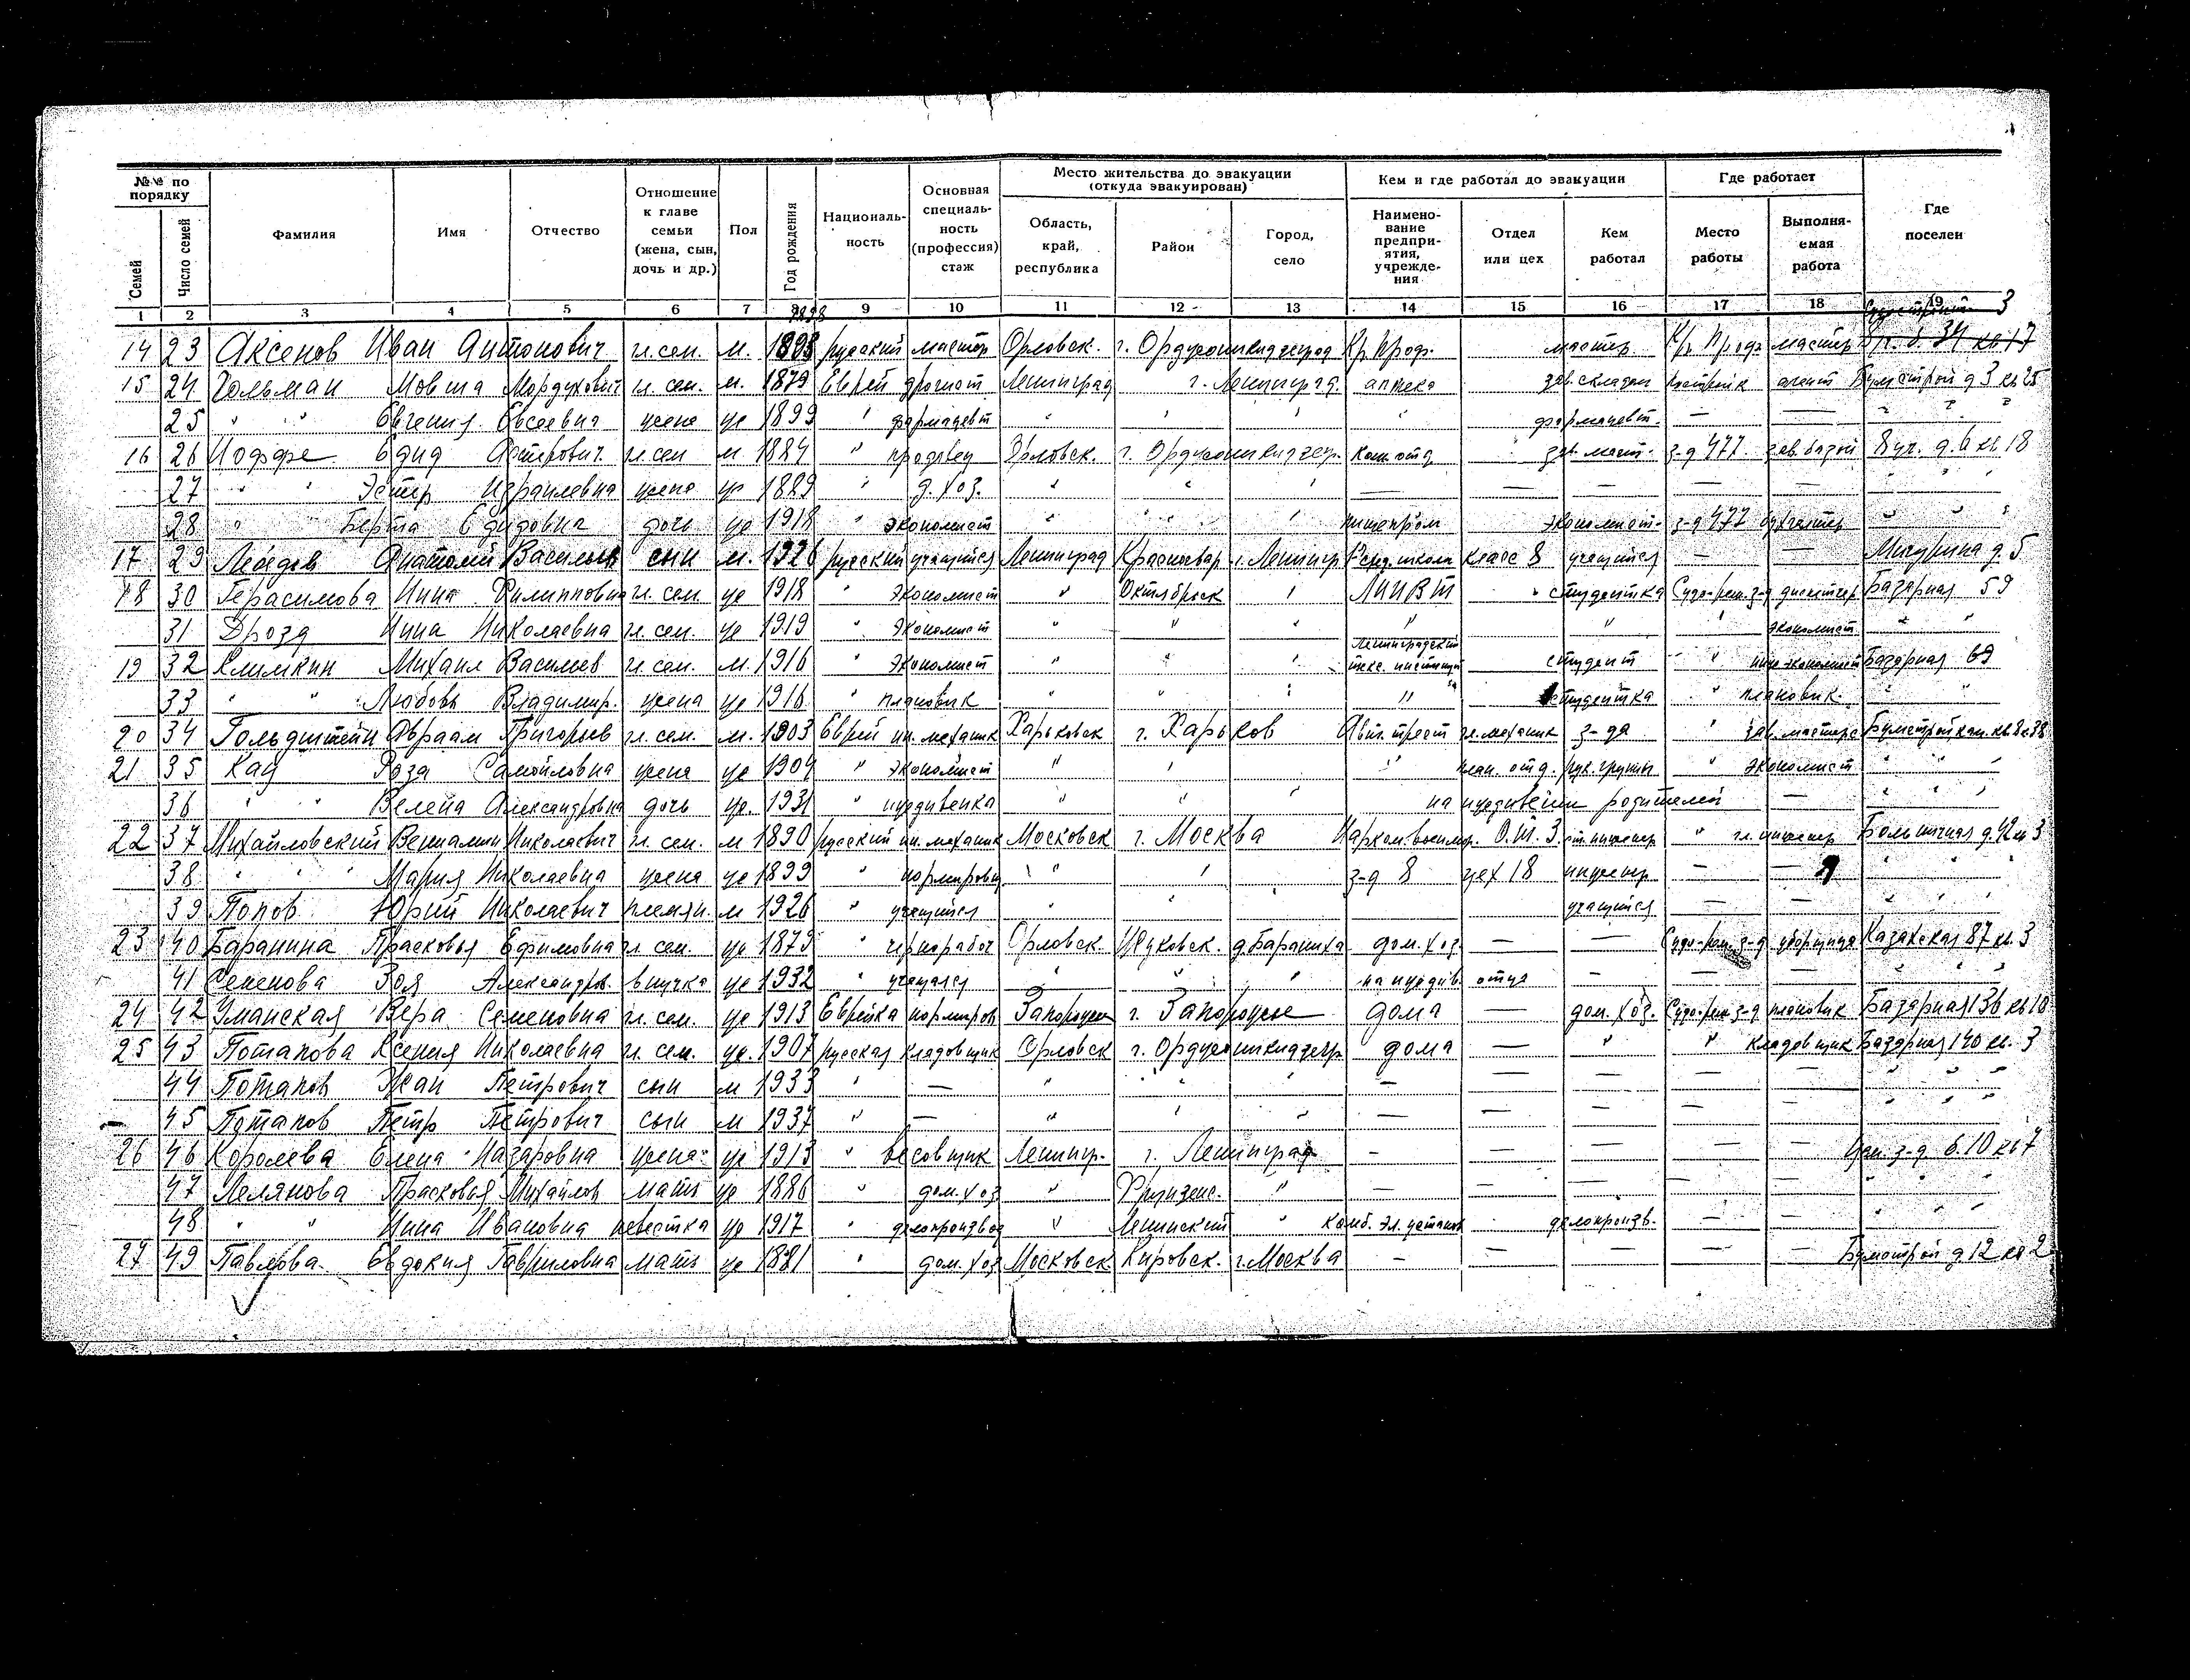 №№ по порядку | Фамилия | Имя | Отчество | Отношение к главе семьи (жена, сын, дочь и др.) | Пол | Год рождения | Националь-ность | Основная специаль-ность (профессия) стаж | Место жительства до эвакуации (откуда эвакуирован) | Кем и где работал до эвакуации | Где работает | Где поселен
Семей | Число семей | Область, край, республика | Район | Город, село | Наимено-вание предпри-ятия, учрежде-ния | Отдел или цех | Кем работал | Место работы | Выполня-емая работа
1 2 3 4 5 6 7 8 9 10 11 12 13 14 15 16 17 18 19
1898 3
14 23 Аксенов Иван Антонович гл. сем. м. русский мастер Орловск. г. Орджоникидзеград Кр. Проф. мастер Кр. Проф. мастер д. 34 кв 17
15 24 Гольман Мовша Мордухович гл. сем. м. 1879 Еврей Ленинград г. Ленинград. аптека зав. складом агент Бумстрой д 3 кв 25
25 " " Евгения Евсеевна жена ж 1899 " фармацевт " " " " фармацевт. — —
16 26 Иоффе гл. сем м 1884 " продавец Орловск. г. Орджоникидзегр. з-д 477 зав. базой 8 уч. д. 6 кв 18
27 " " Эстер Израилевна жена ж 1889 " д. хоз. " " " — — — — — " "
28 " " Берта дочь ж 1918 " экономист " " " пищепром экономист. з-д 477 бухгалтер " "
17 29 Лебедев Анатолий Васильев сын м. 1926 русский учащийся Ленинград г. Ленингр класс 8 учащийся — — Мичурина д. 5
18 30 Герасимова Нина Филипповна гл. сем. ж 1918 " экономист " Октябрьск " ЛИИВТ " студентка Судо-рем. з-д диспетчер Базарная 59
31 Дрозд Нина Николаевна гл. сем. ж 1919 " экономист " " " " " " экономист. " "
19 32 Климкин Михаил Васильев гл. сем. м. 1916 " экономист " " " Ленинградский студент " Базарная 69
33 " " Любовь Владимир. жена ж 1916 " плановик " " " " студентка " плановик. " "
20 34 Гольдштейн Авраам Григорьев гл. сем. м. 1903 Еврей ин. механик Харьковск г. Харьков гл. механик з-да "
21 35 Кац Роза Самойловна жена ж 1904 " экономист " " " план. отд. рук. группы " экономист " "
36 " " Александровна дочь ж. 1931 " иждивенка " " " на иждивении родителей — " "
22 37 Михайловский Вениамин Николаевич гл. сем. м 1890 русский ин. механик Московск г. Москва О. Т. З. ст. инженер " гл. инженер Больничная д. 42 кв 3
38 " " " Мария Николаевна жена ж 1899 " нормировщ " " з-д 8 цех 18 инженер — — " "
39 Попов Юрий Николаевич племян. м 1926 " учащийся " " " учащийся — — " "
23 40 Баранина Прасковья Ефимовна гл. сем. ж 1879 " чернорабоч Орловск. д. Бараниха дом. хоз. — — Судо-рем. з-д уборщица Казахская 87 кв. 3
41 Семенова Зоя Александров. внучка ж 1932 " учащаяся " " " на иждив. отца — — — " "
24 42 Уманская Вера Семеновна гл. сем. ж 1913 Еврейка нормиров Запорожье г. Запорожье дома — дом. хоз. Судо-рем. з-д плановик Базарная 136 кв 10
25 43 Потапова Ксения Николаевна гл. сем. ж. 1907 русская кладовщик Орловск г. Орджоникидзегр. дома — " " кладовщик Базарная 140 кв. 3
44 Потапов Жан Петрович сын м 1933 " — " " " — — — — — " "
45 Потапов Петр Петрович сын м 1937 " — " " " — — — — — " "
26 46 Королева Елена Назаровна жена ж 1913 " весовщик Ленингр. г. Ленинград — — — — — з-д б. 10 кв 7
47 Лелянова Прасковья Михайлов мать ж 1886 " дом. хоз " Фрунзенс. " — — — — — " "
48 " " Нина Ивановна невестка ж 1917 " делопроизвод " Ленинский " делопроизв. — — " "
27 49 Павлова Евдокия Гавриловна мать ж 1881 " дом. хоз Московск. Кировск. г. Москва — — — — — Бумстрой д 12 кв 2